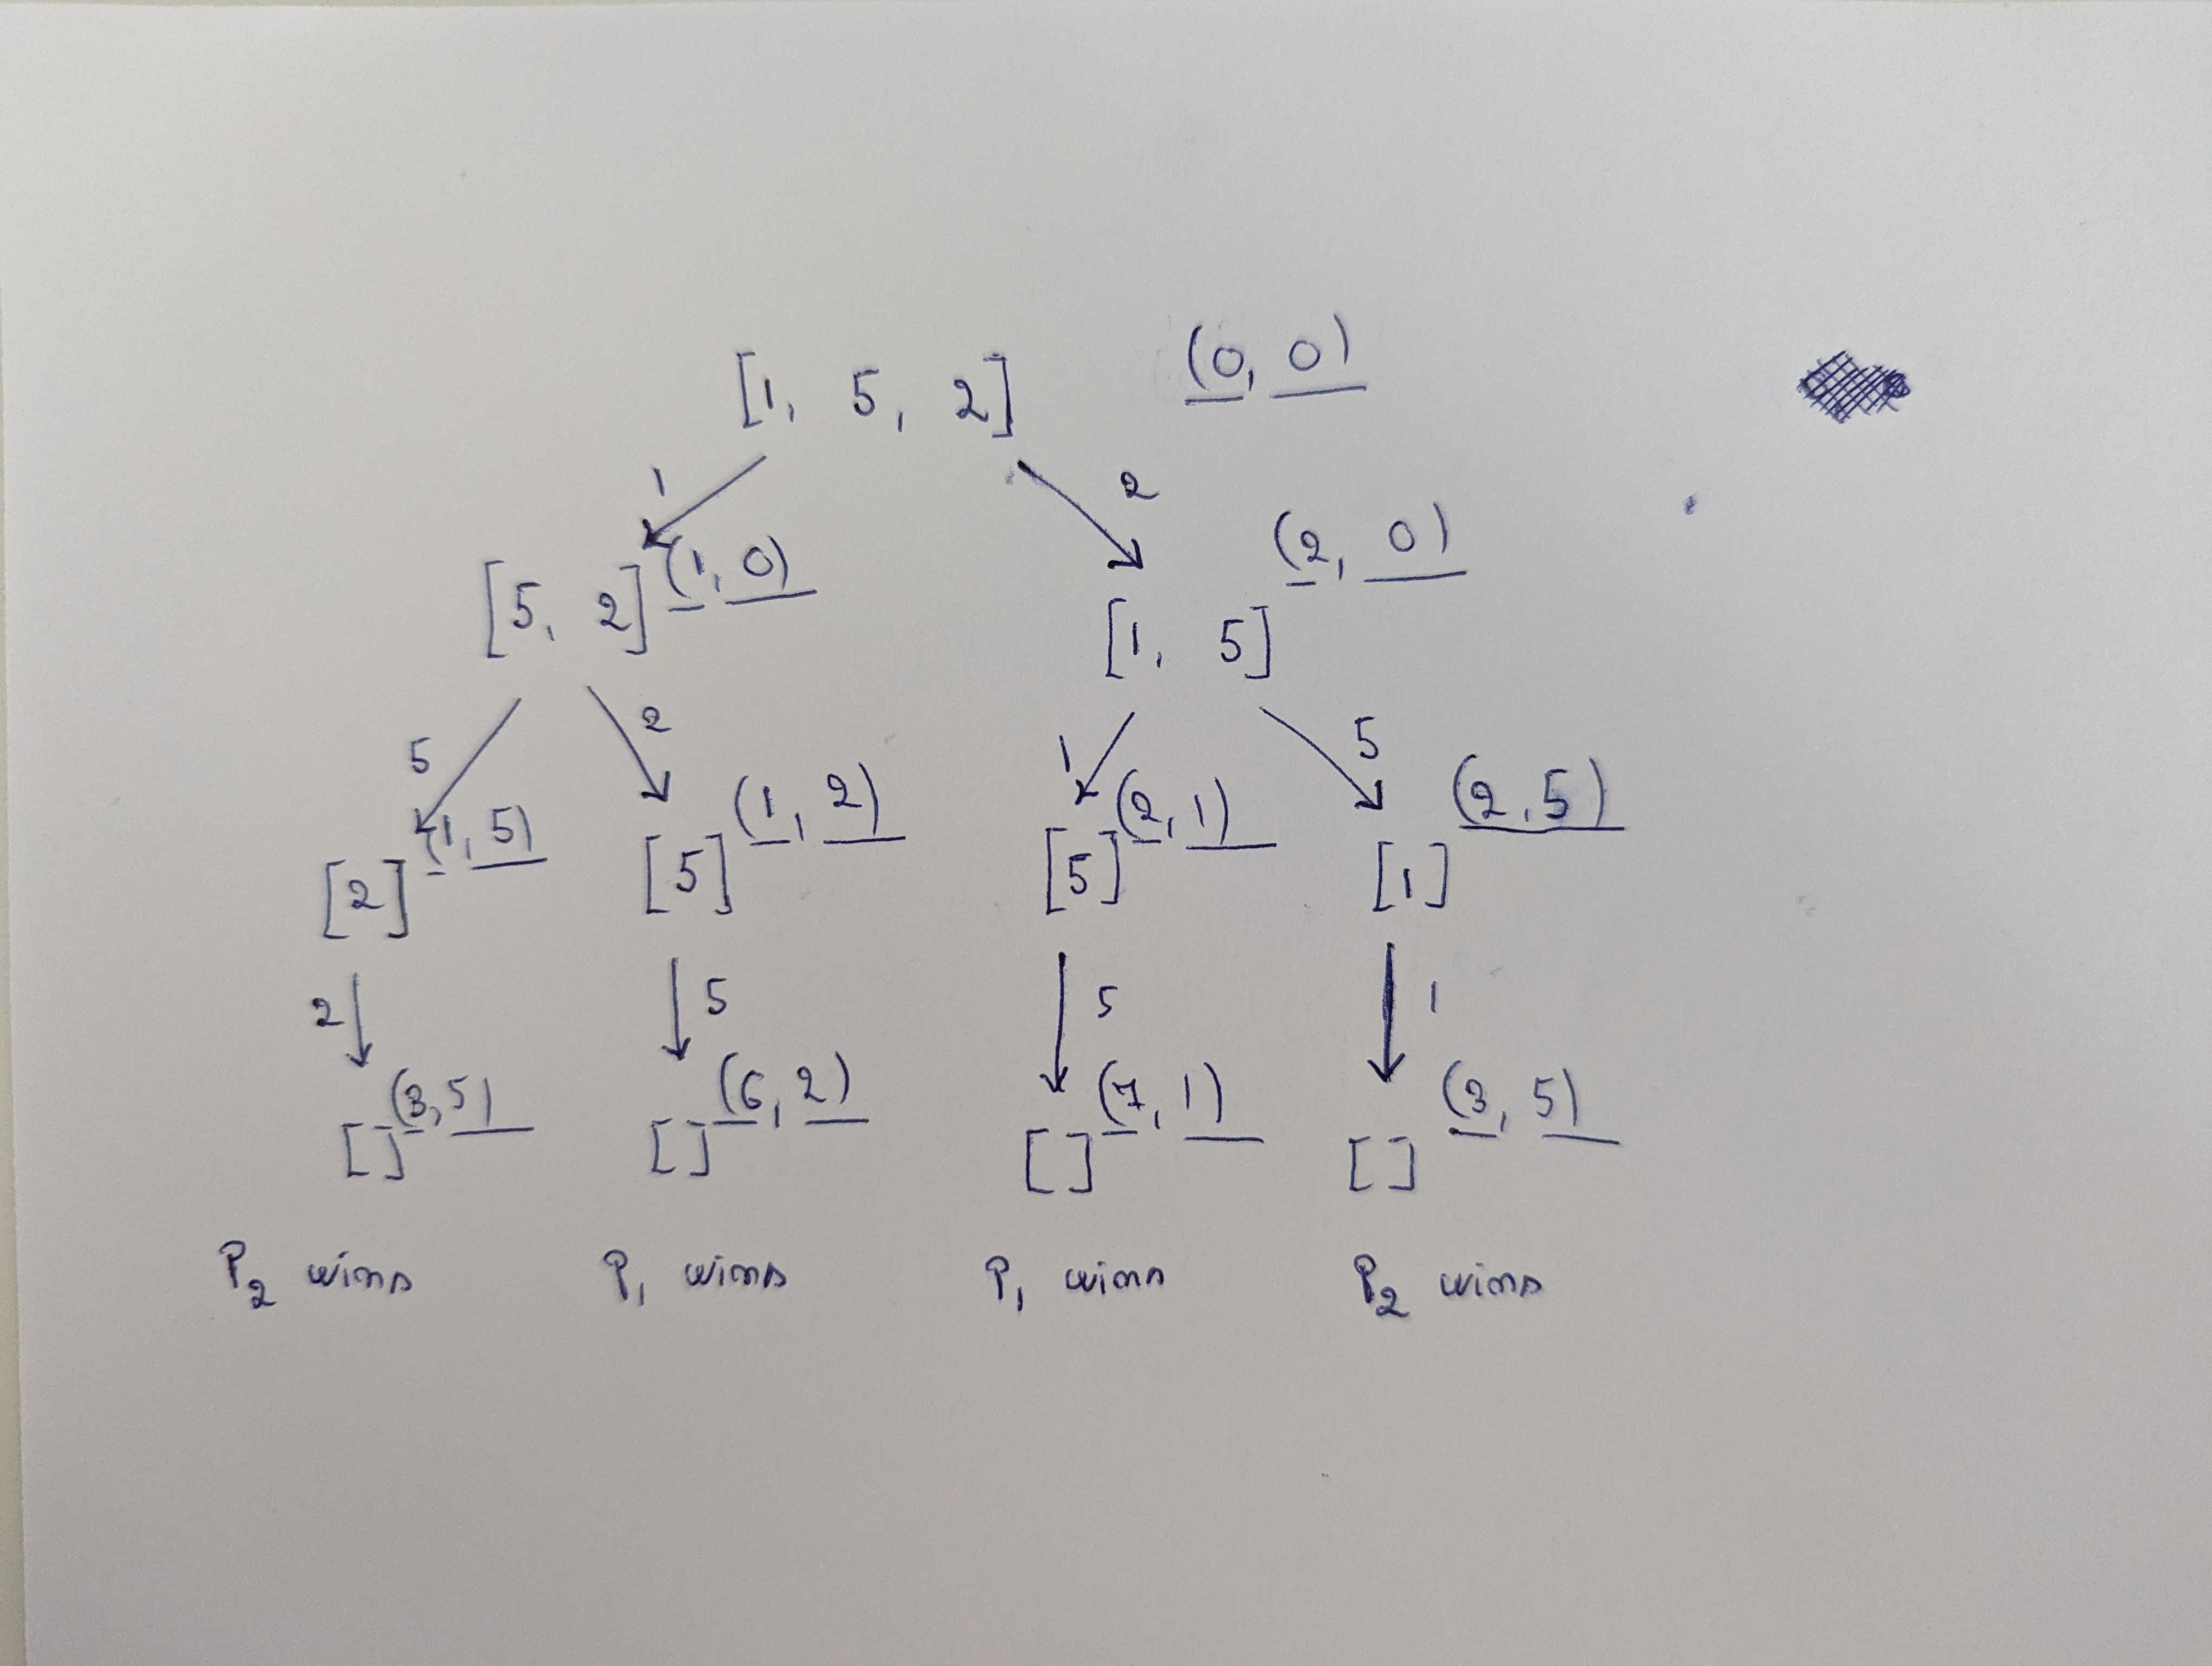 [1, 5, 2] (0, 0)
1 2
[5, 2] (1, 0) [1, 5] (2, 0)
5 2 1 5
[2] (1, 5) [5] (1, 2) [5] (2, 1) [1] (2, 5)
2 5 5 1
[] (3, 5) [] (6, 2) [] (7, 1) [] (3, 5)
P2 wins P1 wins P1 wins P2 wins